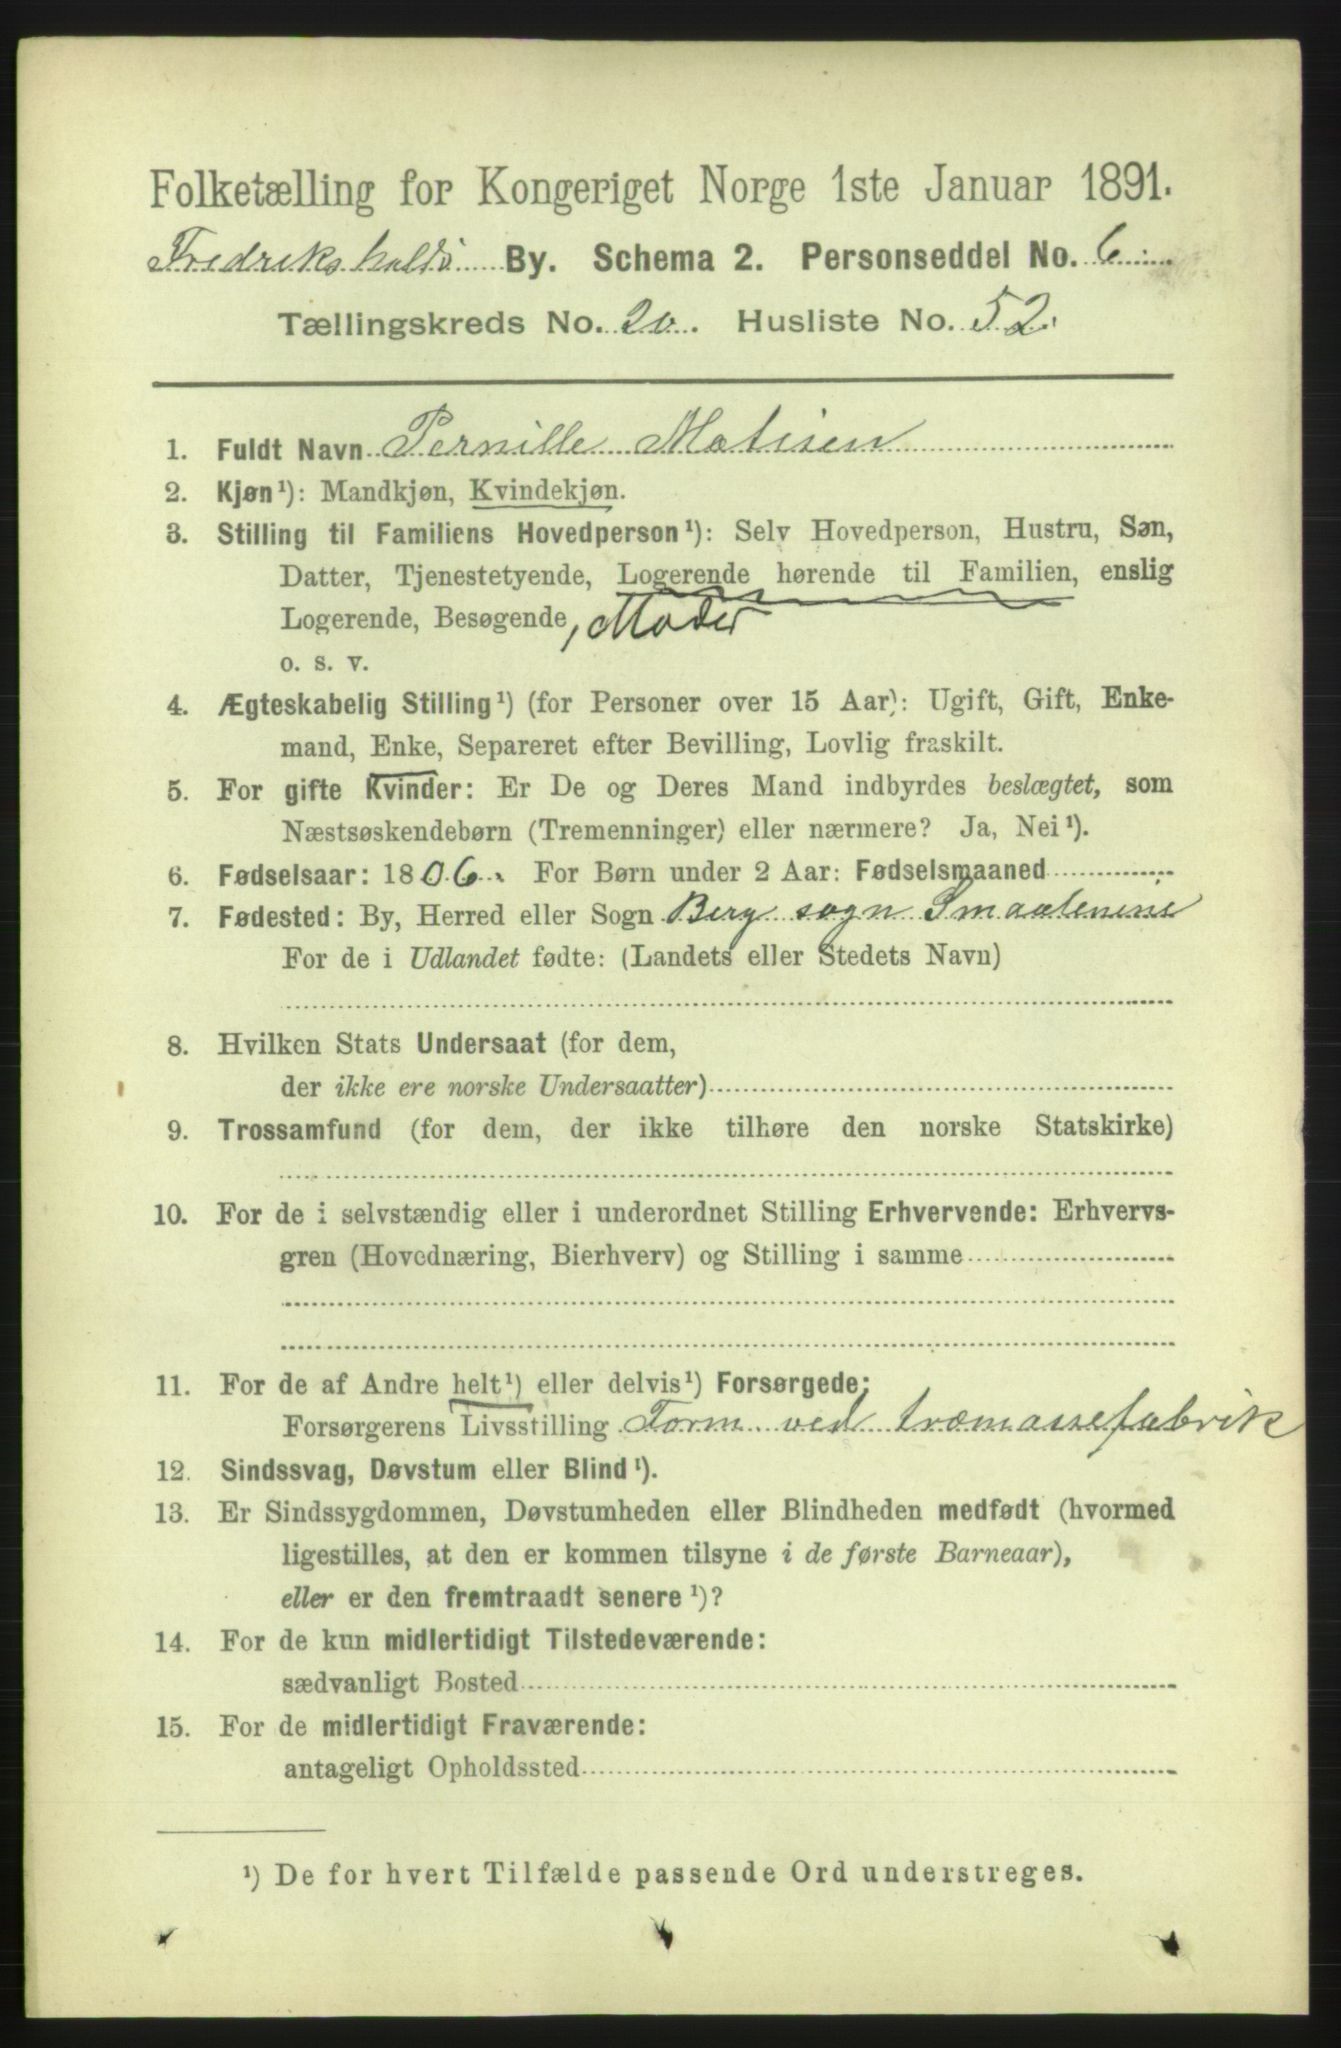 Folketælling for Kongeriget Norge 1ste Januar 1891.
Fredrikshalds By. Schema 2. Personseddel No. 6
Tællingskreds No. 20. Husliste No. 52.
1. Fuldt Navn Pernille Matisen
2. Kjøn¹): Mandkjøn, Kvindekjøn.
3. Stilling til Familiens Hovedperson¹): Selv Hovedperson, Hustru, Søn,
Datter, Tjenestetyende, Logerende hørende til Familien, enslig
Logerende, Besøgende, Moder
o. s. v.
4. Ægteskabelig Stilling¹) (for Personer over 15 Aar): Ugift, Gift, Enke-
mand, Enke, Separeret efter Bevilling, Lovlig fraskilt.
5. For gifte Kvinder: Er De og Deres Mand indbyrdes beslægtet, som
Næstsøskendebørn (Tremenninger) eller nærmere? Ja, Nei¹).
6. Fødselsaar: 1806. For Børn under 2 Aar: Fødselsmaaned
7. Fødested: By, Herred eller Sogn Berg sogn Smaalenene
For de i Udlandet fødte: (Landets eller Stedets Navn)
8. Hvilken Stats Undersaat (for dem,
der ikke ere norske Undersaatter)
9. Trossamfund (for dem, der ikke tilhøre den norske Statskirke)
10. For de i selvstændig eller i underordnet Stilling Erhvervende: Erhvervs-
gren (Hovednæring, Bierhverv) og Stilling i samme
11. For de af Andre helt¹) eller delvis¹) Forsørgede:
Forsørgerens Livsstilling Form. ved træmassefabrik
12. Sindssvag, Døvstum eller Blind¹).
13. Er Sindssygdommen, Døvstumheden eller Blindheden medfødt (hvormed
ligestilles, at den er kommen tilsyne i de første Barneaar),
eller er den fremtraadt senere¹)?
14. For de kun midlertidigt Tilstedeværende:
sædvanligt Bosted
15. For de midlertidigt Fraværende:
antageligt Opholdssted
¹) De for hvert Tilfælde passende Ord understreges.